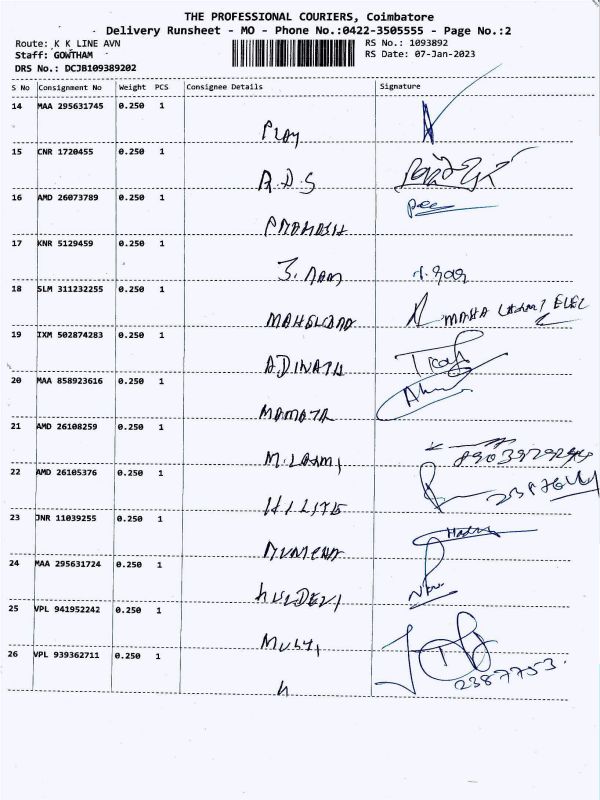 THE PROFESSIONAL COURIERS, Coimbatore
Delivery Runsheet - MO - Phone No.:0422-3505555 - Page No.:2
Route: K K LINE AVN
RS No.: 1093892
Staff: GOWTHAM
RS Date: 07-Jan-2023
DRS No.: DCJB109389202
S No Consignment No Weight PCS Consignee Details Signature
14 MAA 295631745 0.250 1
Play
15 CNR 1720455 0.250 1
R.D.S
16 AMD 26073789 0.250 1
17 KNR 5129459 0.250 1
3. Ram
18 SLM 311232255 0.250 1
MAHA ELEC
19 IXM 502874283 0.250 1
ADINATH
20 MAA 858923616 0.250 1
MAMATA
21 AMD 26108259 0.250 1
M. Laxmi
22 AMD 26105376 0.250 1
HILITE
23 JNR 11039255 0.250 1
24 MAA 295631724 0.250 1
KULDEVI
25 VPL 941952242 0.250 1
26 VPL 939362711 0.250 1
2387753.